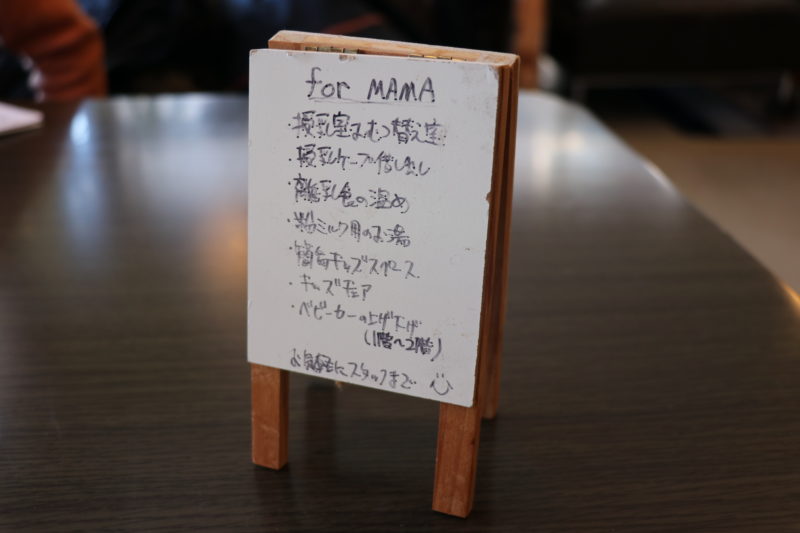 for MAMA
・授乳室おむつ替え室
・授乳ケープ貸し出し
・離乳食の温め
・粉ミルク用のお湯
・簡易キッズスペース
・キッズチェア
・ベビーカーの上げ下げ
(1階〜2階)
お気軽にスタッフまで